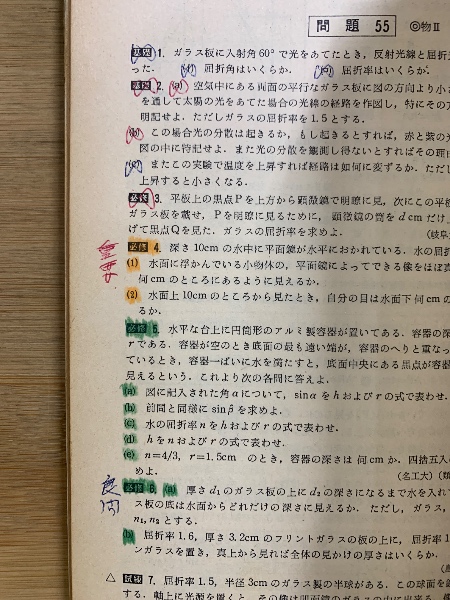 問題 55 ◎物Ⅱ
基礎 1. ガラス板に入射角60°で光をあてたとき，反射光線と屈折
った． (イ) 屈折角はいくらか． (ロ) 屈折率はいくらか．
基礎 2. (イ) 空気中にある両面の平行なガラス板に図の方向より小さ
を通して太陽の光をあてた場合の光線の経路を作図し，特にそのア
明記せよ．ただしガラスの屈折率を1.5とする．
(ロ) この場合光の分散は起きるか，もし起きるとすれば，赤と紫の光
図の中に特記せよ．また光の分散を観測し得ないとすればその理由
(ハ) またこの実験で温度を上昇すれば経路は如何に変ずるか．ただし
上昇すると小さくなる．
必修 3. 平板上の黒点Pを上方から顕微鏡で明瞭に見，次にこの平板
ガラス板を載せ，Pを明瞭に見るために，顕微鏡の筒をdcmだけ上
げて黒点Qを見た．ガラスの屈折率を求めよ． (岐阜
重要
必修 4. 深さ10cmの水中に平面鏡が水平におかれている．水の屈折
(1) 水面に浮かんでいる小物体の，平面鏡によってできる像をほぼ真
何cmのところにあるように見えるか．
(2) 水面上10cmのところから見たとき，自分の目は水面下何cmの
るか．
必修 5. 水平な台上に円筒形のアルミ製容器が置いてある．容器の深
rである．容器が空のとき底面の最も遠い端が，容器のへりと重なっ
ているとき，容器一ぱいに水を満たすと，底面中央にある黒点が容器
見えるという．これより次の各問に答えよ．
(a) 図に記入された角αについて，sinαをhおよびrの式で表わせ．
(b) 前問と同様にsinβを求めよ．
(c) 水の屈折率nをhおよびrの式で表わせ．
(d) hをnおよびrの式で表わせ．
(e) n=4/3, r=1.5cm のとき，容器の深さは何cmか．四捨五入
めよ． (名工大)
良問
必修 6. (a) 厚さd₁のガラス板の上にd₂の深さになるまで水を入れ
ス板の底は水面からどれだけの深さに見えるか．ただし，ガラス，
n₁, n₂とする．
(b) 屈折率1.6，厚さ3.2cmのフリントガラスの板の上に，屈折率1
ンガラスを置き，真上から見れば全体の見かけの厚さはいくらか．
△ 試験 7. 屈折率1.5，半径3cmのガラス製の半球がある．この球面を鍍
する．軸上に光源を置くと，その像は